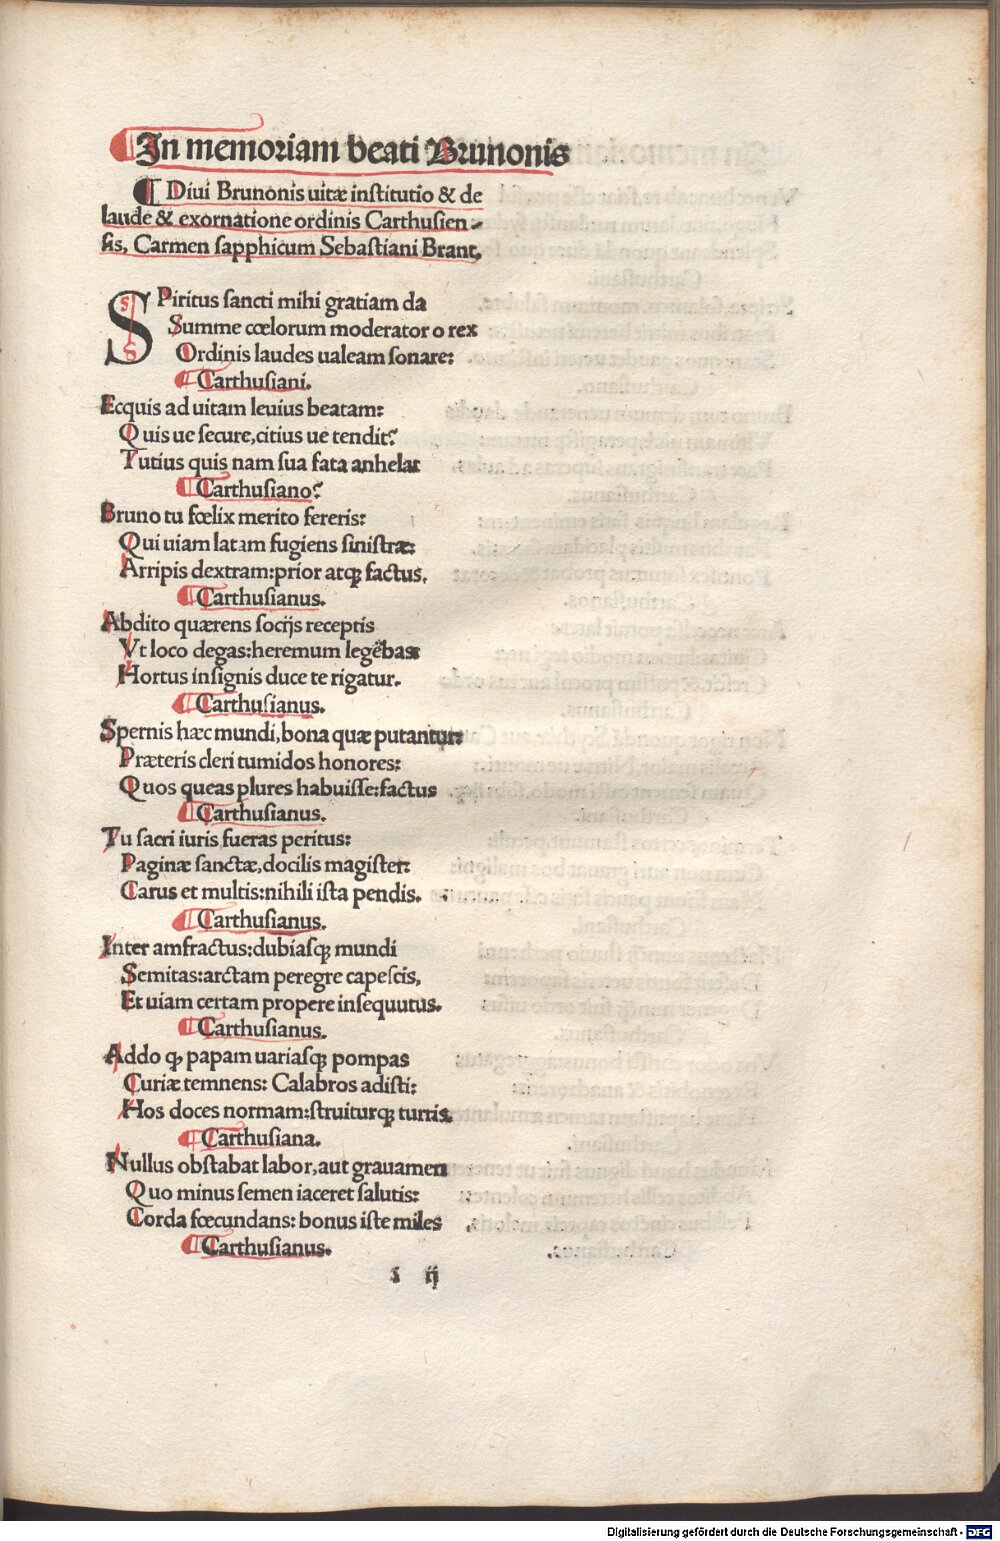 In memoriam beati Brunonis
¶ Diui Brunonis uitæ institutio & de
laude & exornatione ordinis Carthusien-
sis, Carmen sapphicum Sebastiani Brant.
SPiritus sancti mihi gratiam da
Summe cœlorum moderator o rex
Ordinis laudes ualeam sonare:
¶ Carthusiani.
Ecquis ad uitam leuius beatam:
Quis ue secure, citius ue tendit?
Tutius quis nam sua fata anhelat
¶ Carthusiano?
Bruno tu fœlix merito fereris:
Qui uiam latam fugiens sinistræ:
Arripis dextram: prior atqꝫ factus,
¶ Carthusianus.
Abdito quærens socijs receptis
Vt loco degas: heremum legẽbas
Hortus insignis duce te rigatur.
¶ Carthusianus.
Spernis hæc mundi, bona quæ putantur:
Præteris cleri tumidos honores:
Quos queas plures habuisse: factus
¶ Carthusianus.
Tu sacri iuris fueras peritus:
Paginæ sanctæ, docilis magister:
Carus et multis: nihili ista pendis.
¶ Carthusianus.
Inter amfractus: dubiasqꝫ mundi
Semitas: arctam peregre capescis,
Et uiam certam propere insequutus.
¶ Carthusianus.
Addo ꝙ papam uariasqꝫ pompas
Curiæ temnens: Calabros adisti:
Hos doces normam: struiturqꝫ turris
¶ Carthusiana.
Nullus obstabat labor, aut grauamen
Quo minus semen iaceret salutis:
Corda fœcundans: bonus iste miles
¶ Carthusianus.
s ij
Digitalisierung gefördert durch die Deutsche Forschungsgemeinschaft - DFG